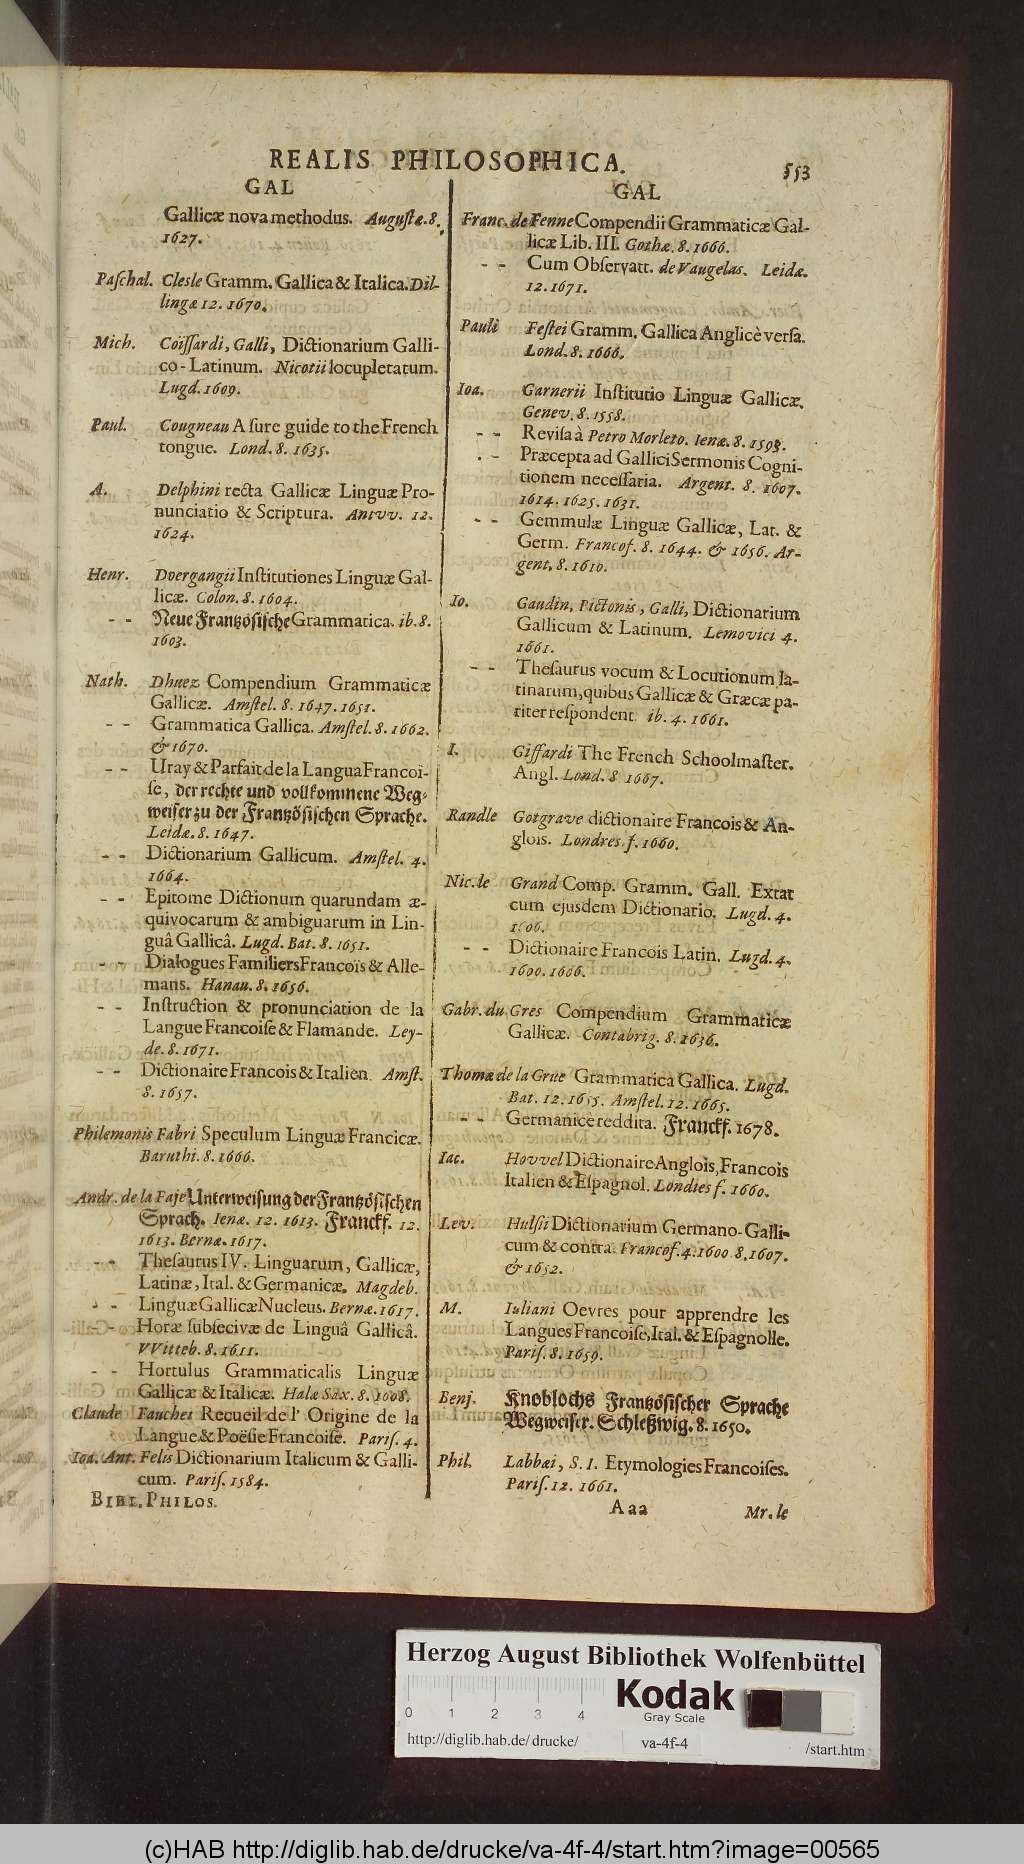 REALIS PHILOSOPHICA.
553
GAL
Gallicæ nova methodus. Augustæ. 8.
1627.
Paſchal. Clesle Gramm. Gallica & Italica. Dil-
lingæ 12. 1670.
Mich. Coïſſardi, Galli, Dictionarium Galli-
co-Latinum. Nicotii locupletatum.
Lugd. 1609.
Paul. Cougneau A ſure guide to the French
tongue. Lond. 8. 1635.
A. Delphini recta Gallicæ Linguæ Pro-
nunciatio & Scriptura. Antvv. 12.
1624.
Henr. Doergangii Inſtitutiones Linguæ Gal-
licæ. Colon. 8. 1604.
- - Neue Frantzöſiſche Grammatica. ib. 8.
1603.
Nath. Dhuez Compendium Grammaticæ
Gallicæ. Amſtel. 8. 1647. 1651.
- - Grammatica Gallica. Amſtel. 8. 1662.
& 1670.
- - Uray & Parfait de la Langua Francoi-
ſe, der rechte und vollkommene Weg-
weiſer zu der Frantzöſiſchen Sprache.
Leidæ. 8. 1647.
- - Dictionarium Gallicum. Amſtel. 4.
1664.
- - Epitome Dictionum quarundam æ-
quivocarum & ambiguarum in Lin-
guâ Gallicâ. Lugd. Bat. 8. 1651.
- - Dialogues Familiers Francois & Alle-
mans. Hanau. 8. 1656.
- - Inſtruction & pronunciation de la
Langue Francoiſe & Flamande. Ley-
de. 8. 1671.
- - Dictionaire Francois & Italien. Amſt.
8. 1657.
Philemonis Fabri Speculum Linguæ Francicæ.
Baruthi. 8. 1666.
Andr. de la Faje Unterweiſung der Frantzöſiſchen
Sprach. Ienæ. 12. 1613. Franckf. 12.
1613. Bernæ. 1617.
- - Theſaurus IV. Linguarum, Gallicæ,
Latinæ, Ital. & Germanicæ. Magdeb.
- - Linguæ Gallicæ Nucleus. Bernæ. 1617.
- - Horæ ſubſecivæ de Linguâ Gallicâ.
VVitteb. 8. 1611.
- - Hortulus Grammaticalis Linguæ
Gallicæ & Italicæ. Halæ Sax. 8. 1608.
Claude Fauchet Recueil de l' Origine de la
Langue & Poëſie Francoiſe. Pariſ. 4.
Ioa. Ant. Felis Dictionarium Italicum & Galli-
cum. Pariſ. 1584.
BIBL. PHILOS.
GAL
Franc. de Fenne Compendii Grammaticæ Gal-
licæ Lib. III. Gothæ. 8. 1666.
- - Cum Obſervatt. de Vaugelas. Leidæ.
12. 1671.
Pauli Feſtei Gramm. Gallica Anglicè verſa.
Lond. 8. 1666.
Ioa. Garnerii Inſtitutio Linguæ Gallicæ.
Genev. 8. 1558.
- - Reviſa à Petro Morleto. Ienæ. 8. 1593.
- - Præcepta ad Gallici Sermonis Cogni-
tionem neceſſaria. Argent. 8. 1607.
1614. 1625. 1631.
- - Gemmulæ Linguæ Gallicæ, Lat. &
Germ. Francof. 8. 1644. & 1656. Ar-
gent. 8. 1610.
Io. Gaudin, Pictonis, Galli, Dictionarium
Gallicum & Latinum. Lemovici 4.
1661.
- - Theſaurus vocum & Locutionum la-
tinarum, quibus Gallicæ & Græcæ pa-
riter reſpondent ib. 4. 1661.
I. Giffardi The French Schoolmaſter.
Angl. Lond. 8 1667.
Randle Gotgrave dictionaire Francois & An-
glois. Londres f. 1660.
Nic. le Grand Comp. Gramm. Gall. Extat
cum ejusdem Dictionario. Lugd. 4.
1606.
- - Dictionaire Francois Latin. Lugd. 4.
1600. 1606.
Gabr. du Gres Compendium Grammaticæ
Gallicæ. Contabrig. 8. 1636.
Thomæ de la Grue Grammatica Gallica. Lugd.
Bat. 12. 1655. Amſtel. 12. 1665.
- - Germanice reddita. Franckf. 1678.
Iac. Hovvel Dictionaire Anglois, Francois
Italien & Eſpagnol. Londies f. 1660.
Lev. Hulſii Dictionarium Germano-Galli-
cum & contra. Francof. 4. 1600 8. 1607.
& 1652.
M. Iuliani Oevres pour apprendre les
Langues Francoiſe, Ital. & Eſpagnolle.
Pariſ. 8. 1659.
Benj. Knoblochs Frantzöſiſcher Sprache
Wegweiſer. Schleßwig. 8. 1650.
Phil. Labbæi, S. I. Etymologies Francoiſes.
Pariſ. 12. 1661.
Aaa
Mr. le
Herzog August Bibliothek Wolfenbüttel
0 1 2 3 4
Kodak
Gray Scale
http://diglib.hab.de/drucke/
va-4f-4
/start.htm
(c)HAB http://diglib.hab.de/drucke/va-4f-4/start.htm?image=00565